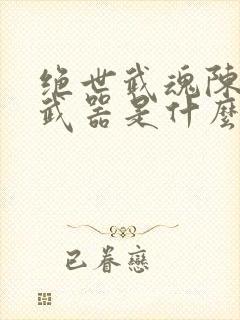 绝世武魂陈
武器是什麼
已眷戀